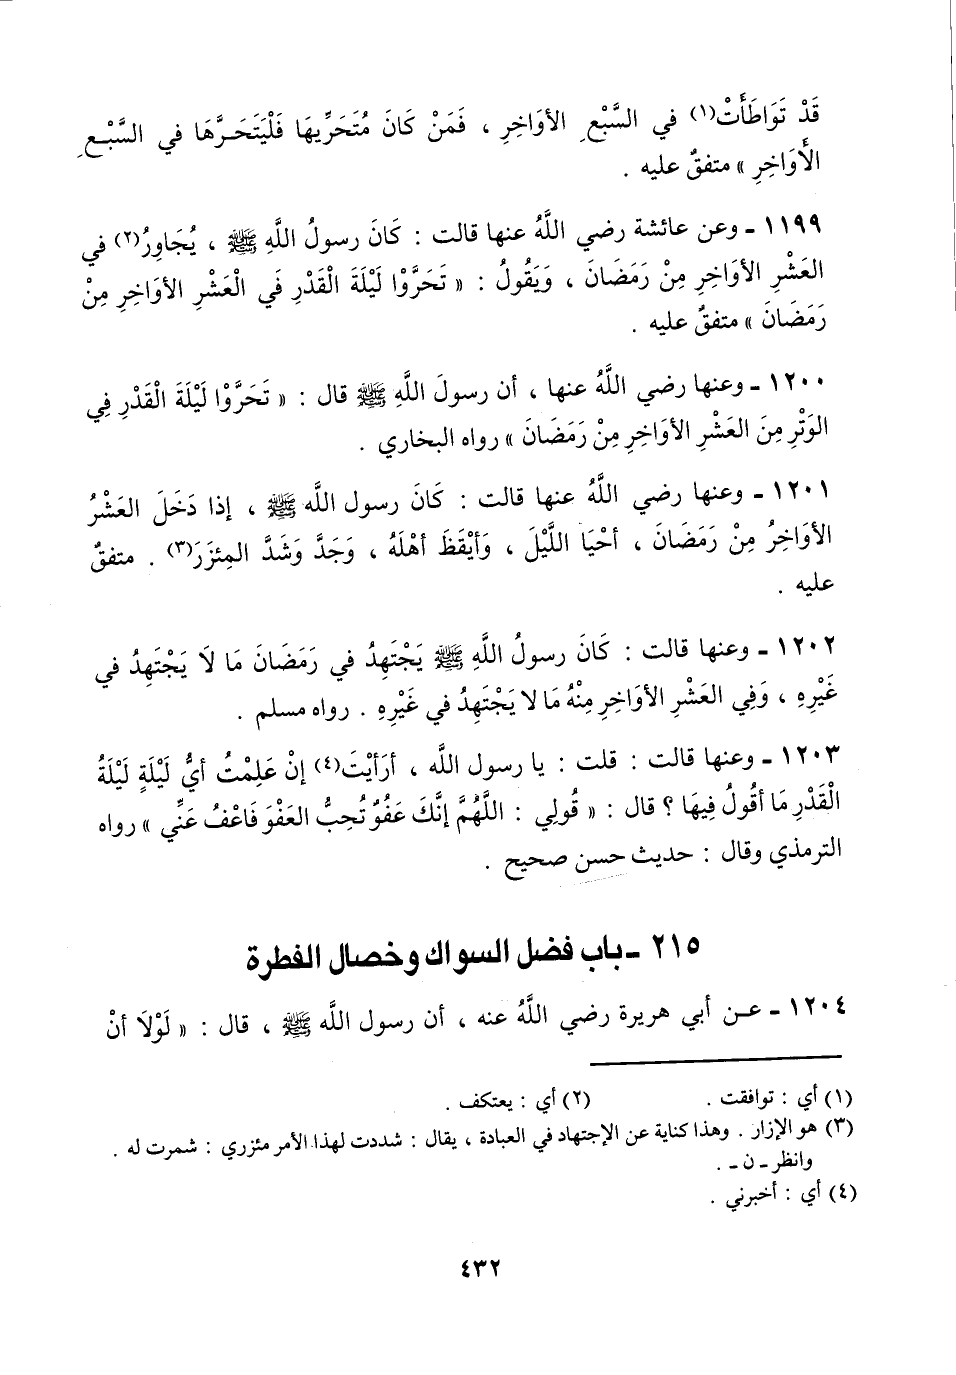 قَدْ تَوَاطَأَتْ(١) في السَّبْعِ الأوَاخِرِ ، فَمَنْ كَانَ مُتَحَرِّيهَا فَلْيَتَحَرَّهَا في السَّبْعِ
الْأَوَاخِرِ » متفقٌ عليه .
١١٩٩ ـ وعن عائشة رضي اللَّهُ عنها قالت : كَانَ رسولُ اللَّهِ ﷺ ، يُجَاوِرُ(٢) في
العَشْرِ الأوَاخِرِ مِنْ رَمَضَانَ ، وَيَقُولُ : « تَحَرَّوْا لَيْلَةَ الْقَدْرِ فَي الْعَشْرِ الأوَاخِرِ مِنْ
رَمَضَانَ » متفقٌ عليه .
١٢٠٠ ـ وعنها رضي اللَّهُ عنها ، أن رسولَ اللَّهِ ﷺ قال : « تَحَرَّوْا لَيْلَةَ الْقَدْرِ فِي
الوَتْرِ مِنَ العَشْرِ الأوَاخِرِ مِنْ رَمَضَانَ » رواه البخاري .
١٢٠١ ـ وعنها رضي اللَّهُ عنها قالت : كَانَ رسول اللَّه ﷺ ، إذا دَخَلَ العَشْرُ
الأوَاخِرُ مِنْ رَمَضَانَ ، أحْيَا اللَّيْلَ ، وَأيْقَظَ أهْلَهُ ، وَجَدَّ وَشَدَّ المِئزَرَ(٣) . متفقٌ
عليه .
١٢٠٢ ـ وعنها قالت : كَانَ رسولُ اللَّهِ ﷺ يَجْتَهِدُ في رَمَضَانَ مَا لَا يَجْتَهِدُ في
غَيْرِهِ ، وَفِي العَشْرِ الأوَاخِرِ مِنْهُ مَا لا يَجْتَهِدُ في غَيْرِهِ . رواه مسلم .
١٢٠٣ ـ وعنها قالت : قلت : يا رسول اللَّه ، أرَأيْتَ(٤) إنْ عَلِمْتُ أيُّ لَيْلَةٍ لَيْلَةُ
الْقَدْرِ مَا أقُولُ فِيهَا ؟ قال : « قُولِي : اللَّهُمَّ إنَّكَ عَفُوٌ تُحِبُّ العَفْوَ فَاعْفُ عَنِّي » رواه
الترمذي وقال : حديث حسن صحيح .
٢١٥ ـ باب فضل السواك وخصال الفطرة
١٢٠٤ ـ عـن أبي هريرة رضي اللَّهُ عنه ، أن رسول اللَّه ﷺ ، قال : « لَوْلَا أنْ
(١) أي : توافقت . (٢) أي : يعتكف .
(٣) هو الإزار . وهذا كناية عن الإجتهاد في العبادة ، يقال : شددت لهذا الأمر مئزري : شمرت له .
وانظر ـ ن ـ .
(٤) أي : أخبرني .
٤٣٢